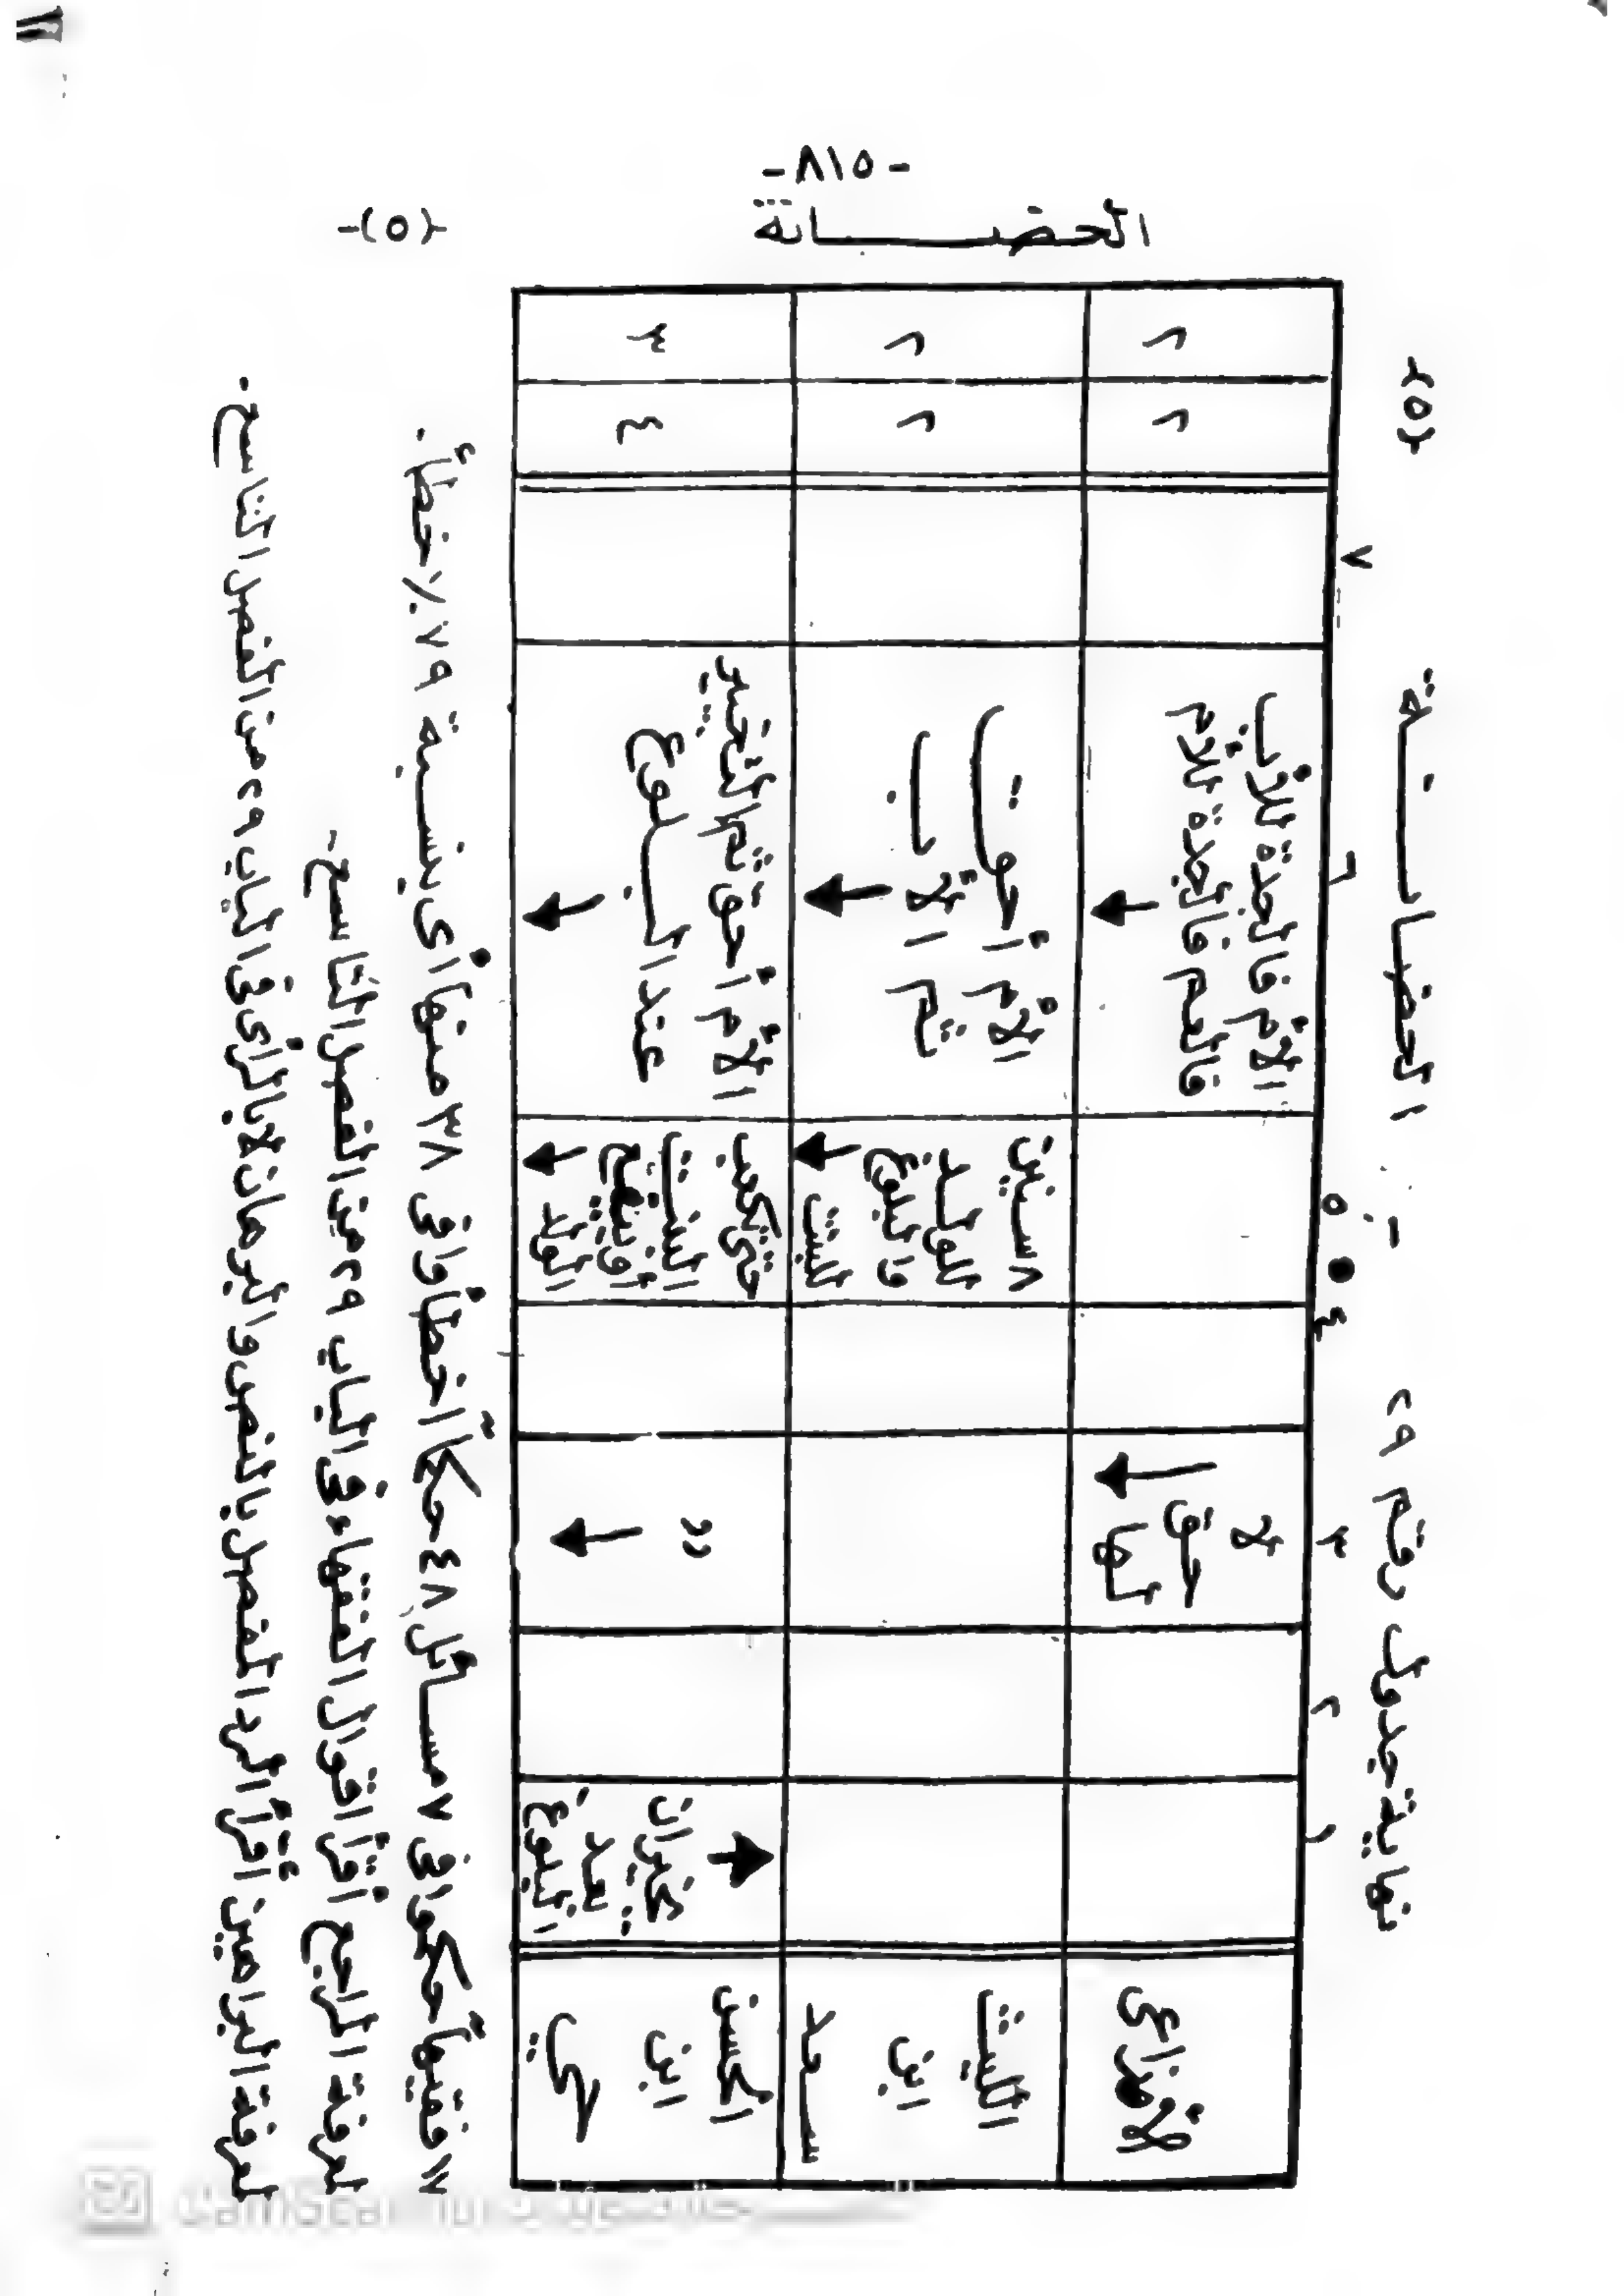 -٨١٥-
الحضانة
-(٥)-
نهاية جدول رقم ٢٩ - الحضانة (٥)
١ ٢ ٣ ٤ ٥ ٦ ٧
الأوزاعى
لا
حق
لها
الأم فالجدة للأب
فالعم فالجدة للام
٢
٢
الليث
ابن
سعد
٨ سنين
للولد
والبلوغ
للبنت
الأم أحق
ثم الأب
٢
٢
الحسن
ابن
حي
يخيران
بعد
البلوغ
»
حتى تكعب
البنت
أو ييفع
الولد
الأم أحق ثم التخيير
عند البلوغ
٤
٣
١٧ فقيهاً حكموا فى ٧ مسائل ٤٨ حكماً أخطأوا فى ٣٨ منها أى بنسبة ٧٩٪ خطأ.
لمعرفة المراجع أقرأ اقوال الفقهاء فى الباب ٢٩ من الفصل التاسع-
لمعرفة البراهين أقرأ الرد المفصل بالنص والبرهان لا بالرأى فى الباب ٢٩ من الفصل التاسع-